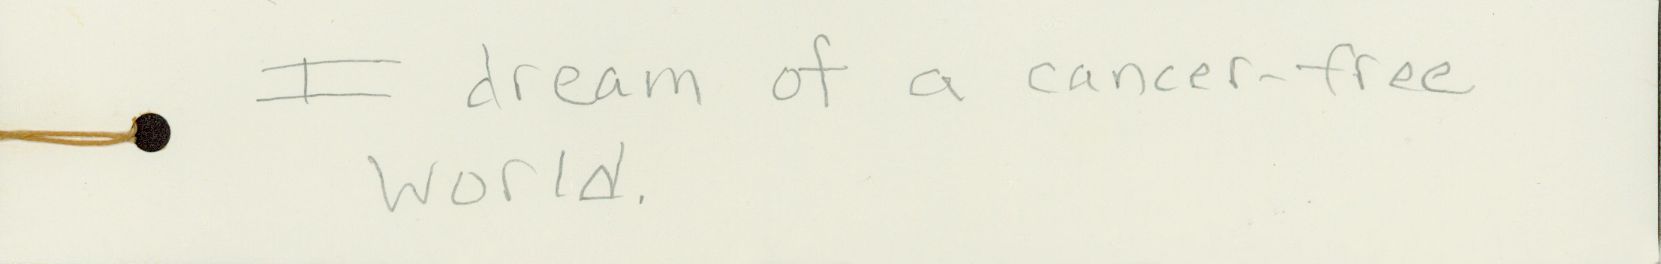 I dream of a cancer-free
world.